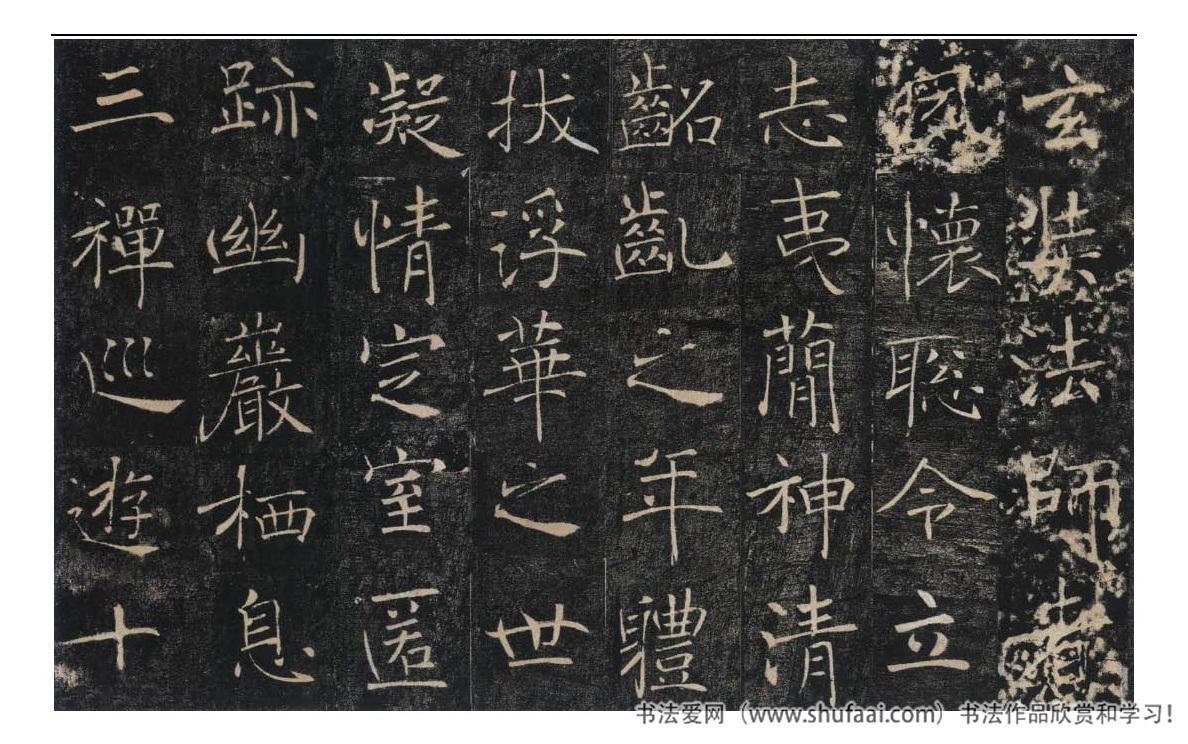 玄奘法師者
夙懷聡令立
志夷蕑神清
齠齔之年體
拔浮華之世
凝情定室匿
跡幽巖栖息
三禪巡遊十
书法爱网（www.shufaai.com）书法作品欣赏和学习！